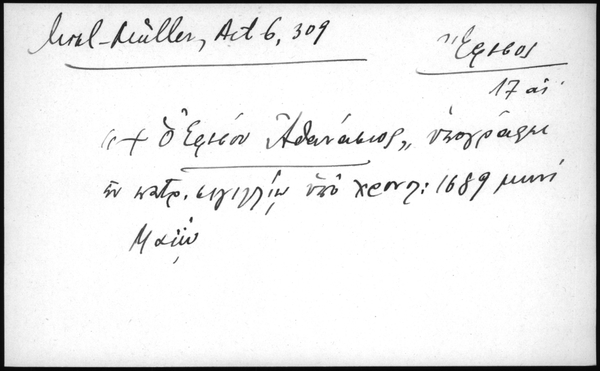 Mikl-Müller, Act 6, 309
Ἔφεσος
17 αἰ.
"+ ὁ Ἐφέσου Ἀθανάσιος" ὑπογράφει
ἐν πατρ. σιγιλλίῳ ὑπὸ χρονολ: 1689 μηνὶ
Μαΐῳ